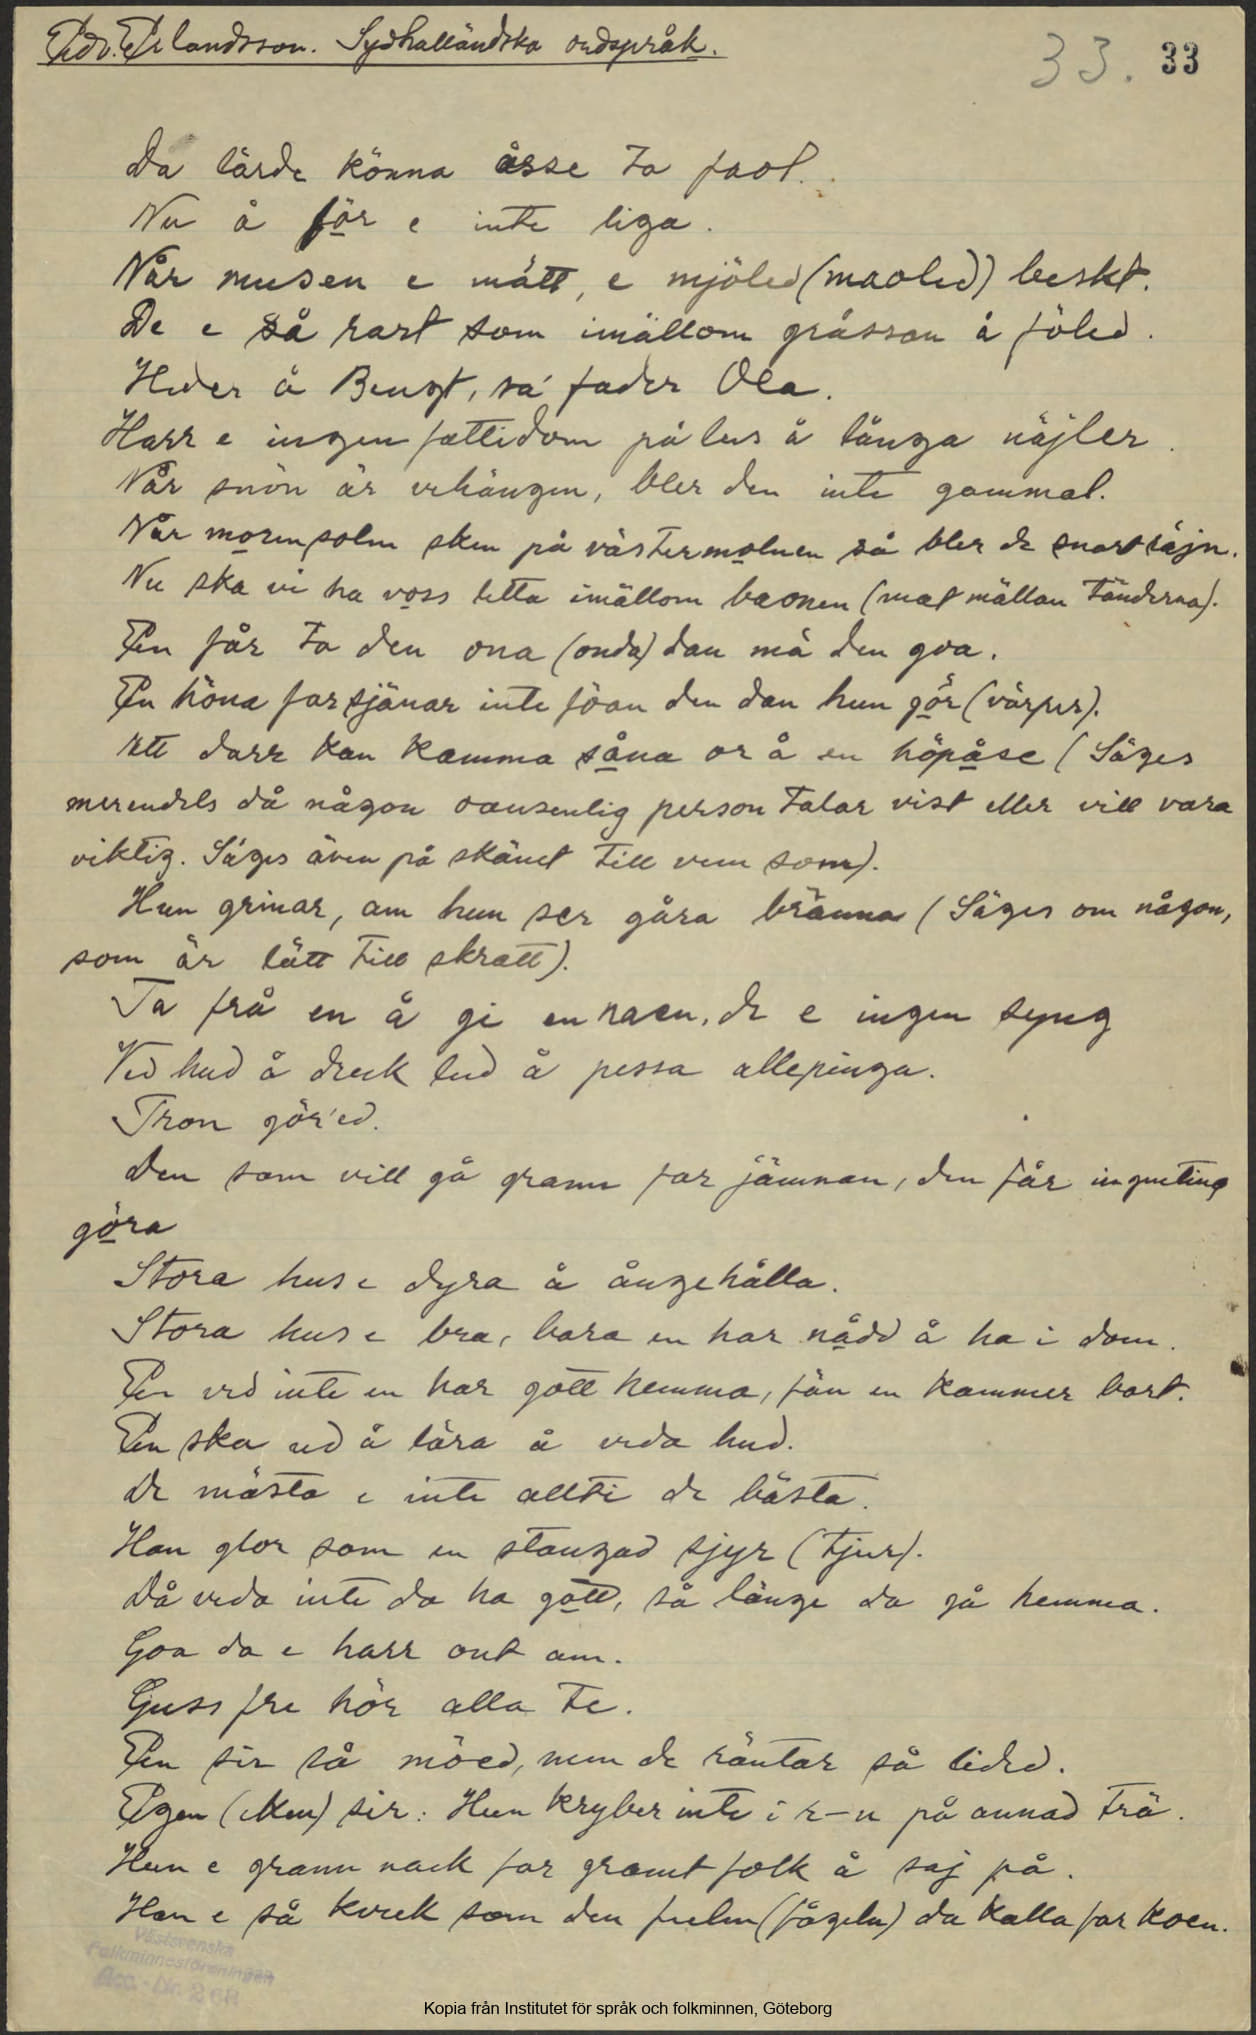 Edv. Erlandsson. Sydhalländska ordspråk.
33. 33
Da lärde könna åsse ta faol.
Nu å för e inte liga.
Når musen e mätt, e mjöled (maoled) beskt.
De e så rart som imällom gråsson å föled.
Heder å Bengt, sa' fader Ola.
Harr e ingen fattidom på lus å långa näjler.
Når snön är uehängen, bler den inte gammal.
Når morensolen sken på västermolnen så bler de snart räjn.
Nu ska vi ha voss letta imällom baonen (mat mällan tänderna).
En får ta den ona (onda) dan mä den goa.
En höna farsjänar inte föan den dan hun gör (värper).
Ett darr kan kamma såna or å en höpåse (Säges
merendels då någon oansenlig person talar vist eller vill vara
viktig. Säges även på skämt till vem som).
Hun grinar, am hun ser gåra bränna (Säges om någon,
som är lätt till skratt).
Ta frå en å gi en naen, de e ingen syng
Ved hud å drek lud å pessa allepinga.
Tron gör'ed.
Den som vill gå grann far jämnan, den får ingneting
göra
Stora hus e dyra å ångehålla.
Stora hus e bra, bara en har nådd å ha i dom.
En ved inte en har gott hemma, fån en kammer bort.
En ska ud å lära å veda hud.
De mästa e inte allti de bästa.
Han glor som en stangad sjyr (tjur).
Då veda inte da ha gott, så länge da gå hemma.
Goa da e harr ont am.
Guss fre hör alla te.
En sir så möed, men de räntar så lided.
Egen (eken) sir: Hun kryber inte i r-n på annad trä.
Hun e grann nack far gramt folk å saj på.
Han e så kvek som den fuelen (fågeln) da kalla far koen.
Västsvenska
Folkminnesföreningen
Acc.-Nr. 268
Kopia från Institutet för språk och folkminnen, Göteborg